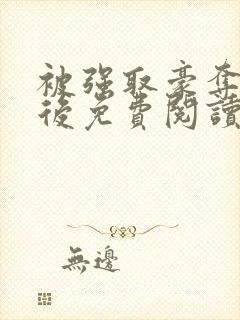 被强取豪夺
後免費閱讀
無邊